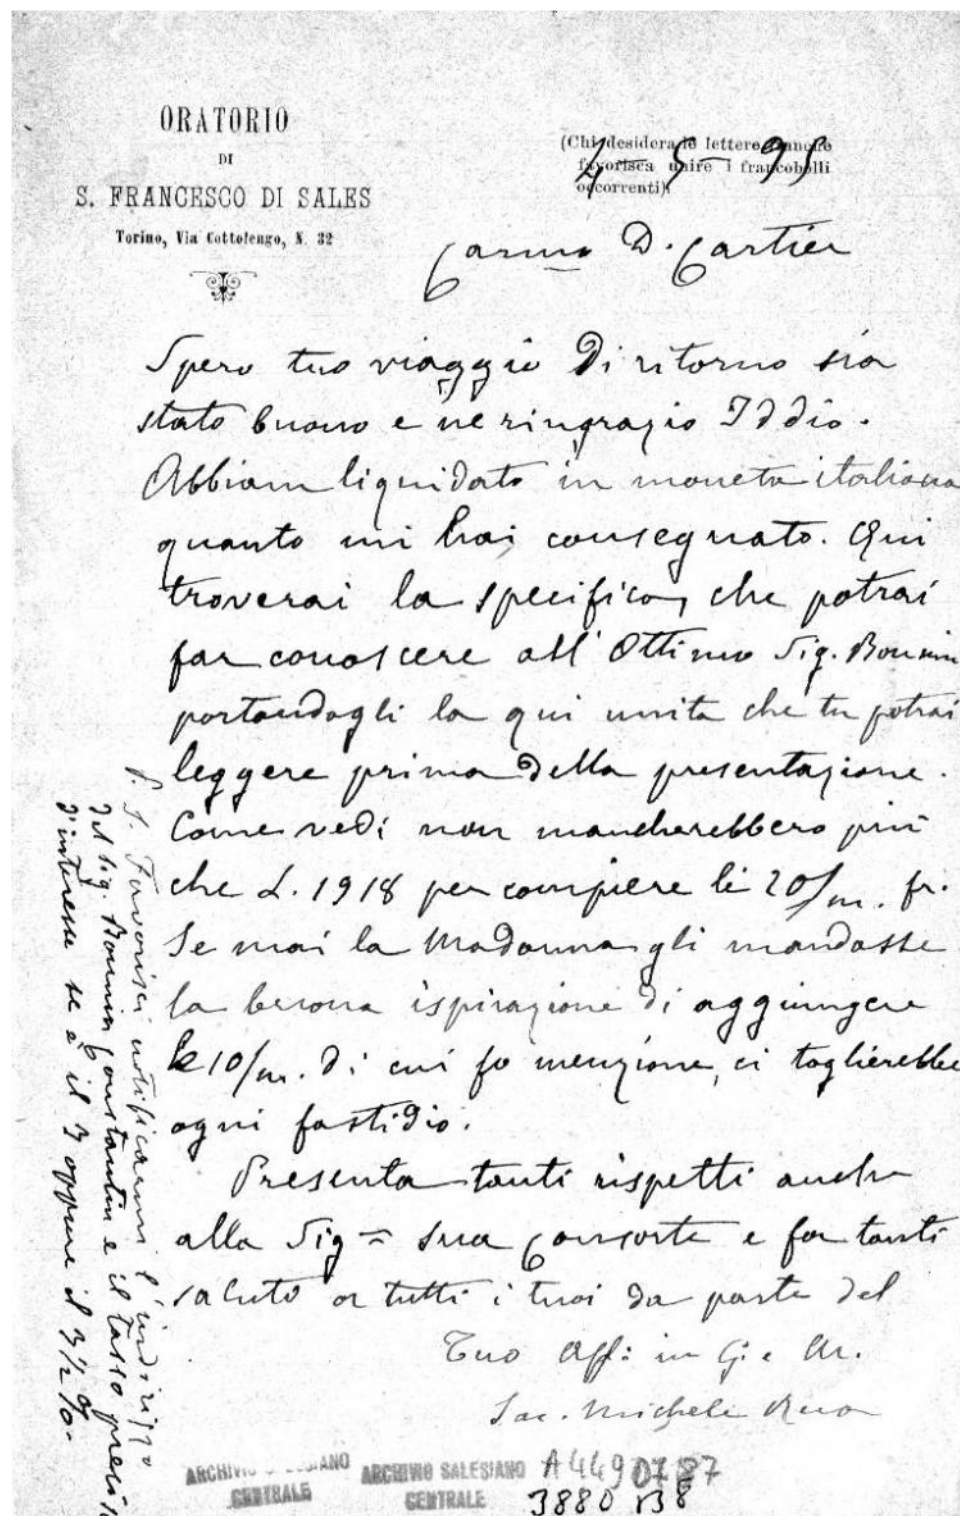 ORATORIO
DI
S. FRANCESCO DI SALES
Torino, Via Cottolengo, N. 32
(Chi desidera le lettere franche
favorisca unire i francobolli
occorrenti)
5 95
Carmo D. Cartier
Spero tuo viaggio di ritorno sia
stato buono e ne ringrazio Iddio.
Abbiam liquidato in moneta italiana
quanto mi hai consegnato. Qui
troverai la specifica, che potrai
far conoscere all'Ottimo Sig.
portandogli la qui unita che tu potrai
leggere prima della presentazione.
Come vedi non mancherebbero più
che L. 1918 per compiere li 20/m. fr.
Se mai la Madonna gli mandasse
la buona ispirazione di aggiungere
le 10/m. di cui fo menzione, ci toglierebbe
ogni fastidio.
Presenta tanti rispetti anche
alla Sig = sua Consorte e fa tanti
saluti a tutti i tuoi da parte del
Tuo Aff: in G. e M.
Sac. Michele Rua
P. S. Favorisci notificarmi l'indirizzo
del Sig. e il tasso preciso
d'interesse se è il 3 oppure il 3 1/2 %.
ARCHIVIO SALESIANO
CENTRALE
ARCHIVIO SALESIANO
CENTRALE
A449 0787
3880